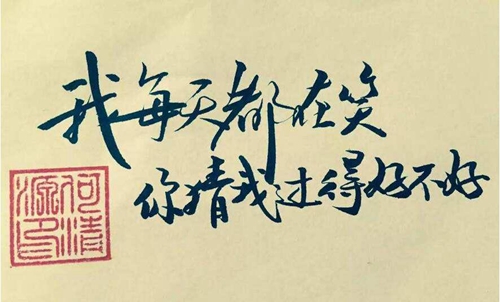 我每天都在笑
你猜我过得好不好
何清源印